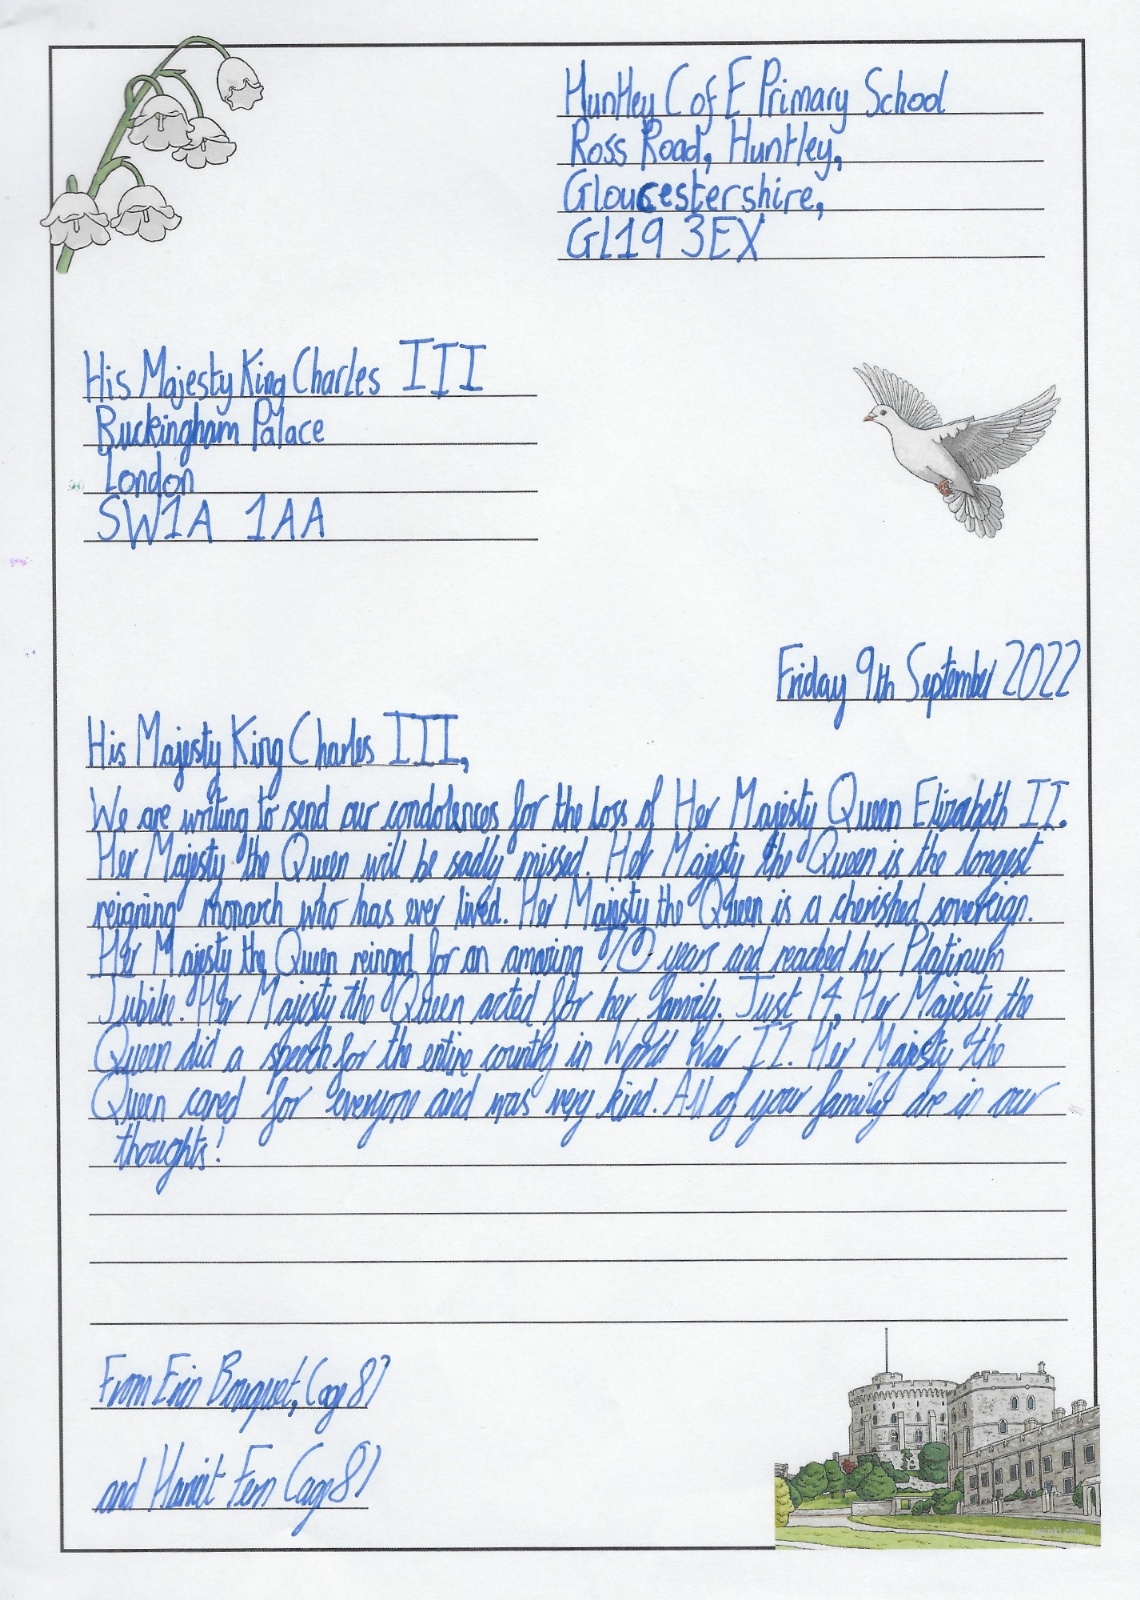 Huntley C of E Primary School
Ross Road, Huntley,
Gloucestershire,
GL19 3EX
His Majesty King Charles III
Buckingham Palace
London
SW1A 1AA
Friday 9th September 2022
His Majesty King Charles III,
We are writing to send our condolences for the loss of Her Majesty Queen Elizabeth II.
Her Majesty the Queen will be sadly missed. Her Majesty the Queen is the longest
reigning monarch who has ever lived. Her Majesty the Queen is a cherished sovereign.
Her Majesty the Queen reinged for an amazing 70 years and reached her Platinum
Jubilee. Her Majesty the Queen acted for her family. Just 14, Her Majesty the
Queen did a speech for the entire country in World War II. Her Majesty the
Queen cared for everyone and was very kind. All of your family are in our
thoughts!
From Erin Bouquet, (age 8)
and Harriet Fern (age 8)
twinkl.com